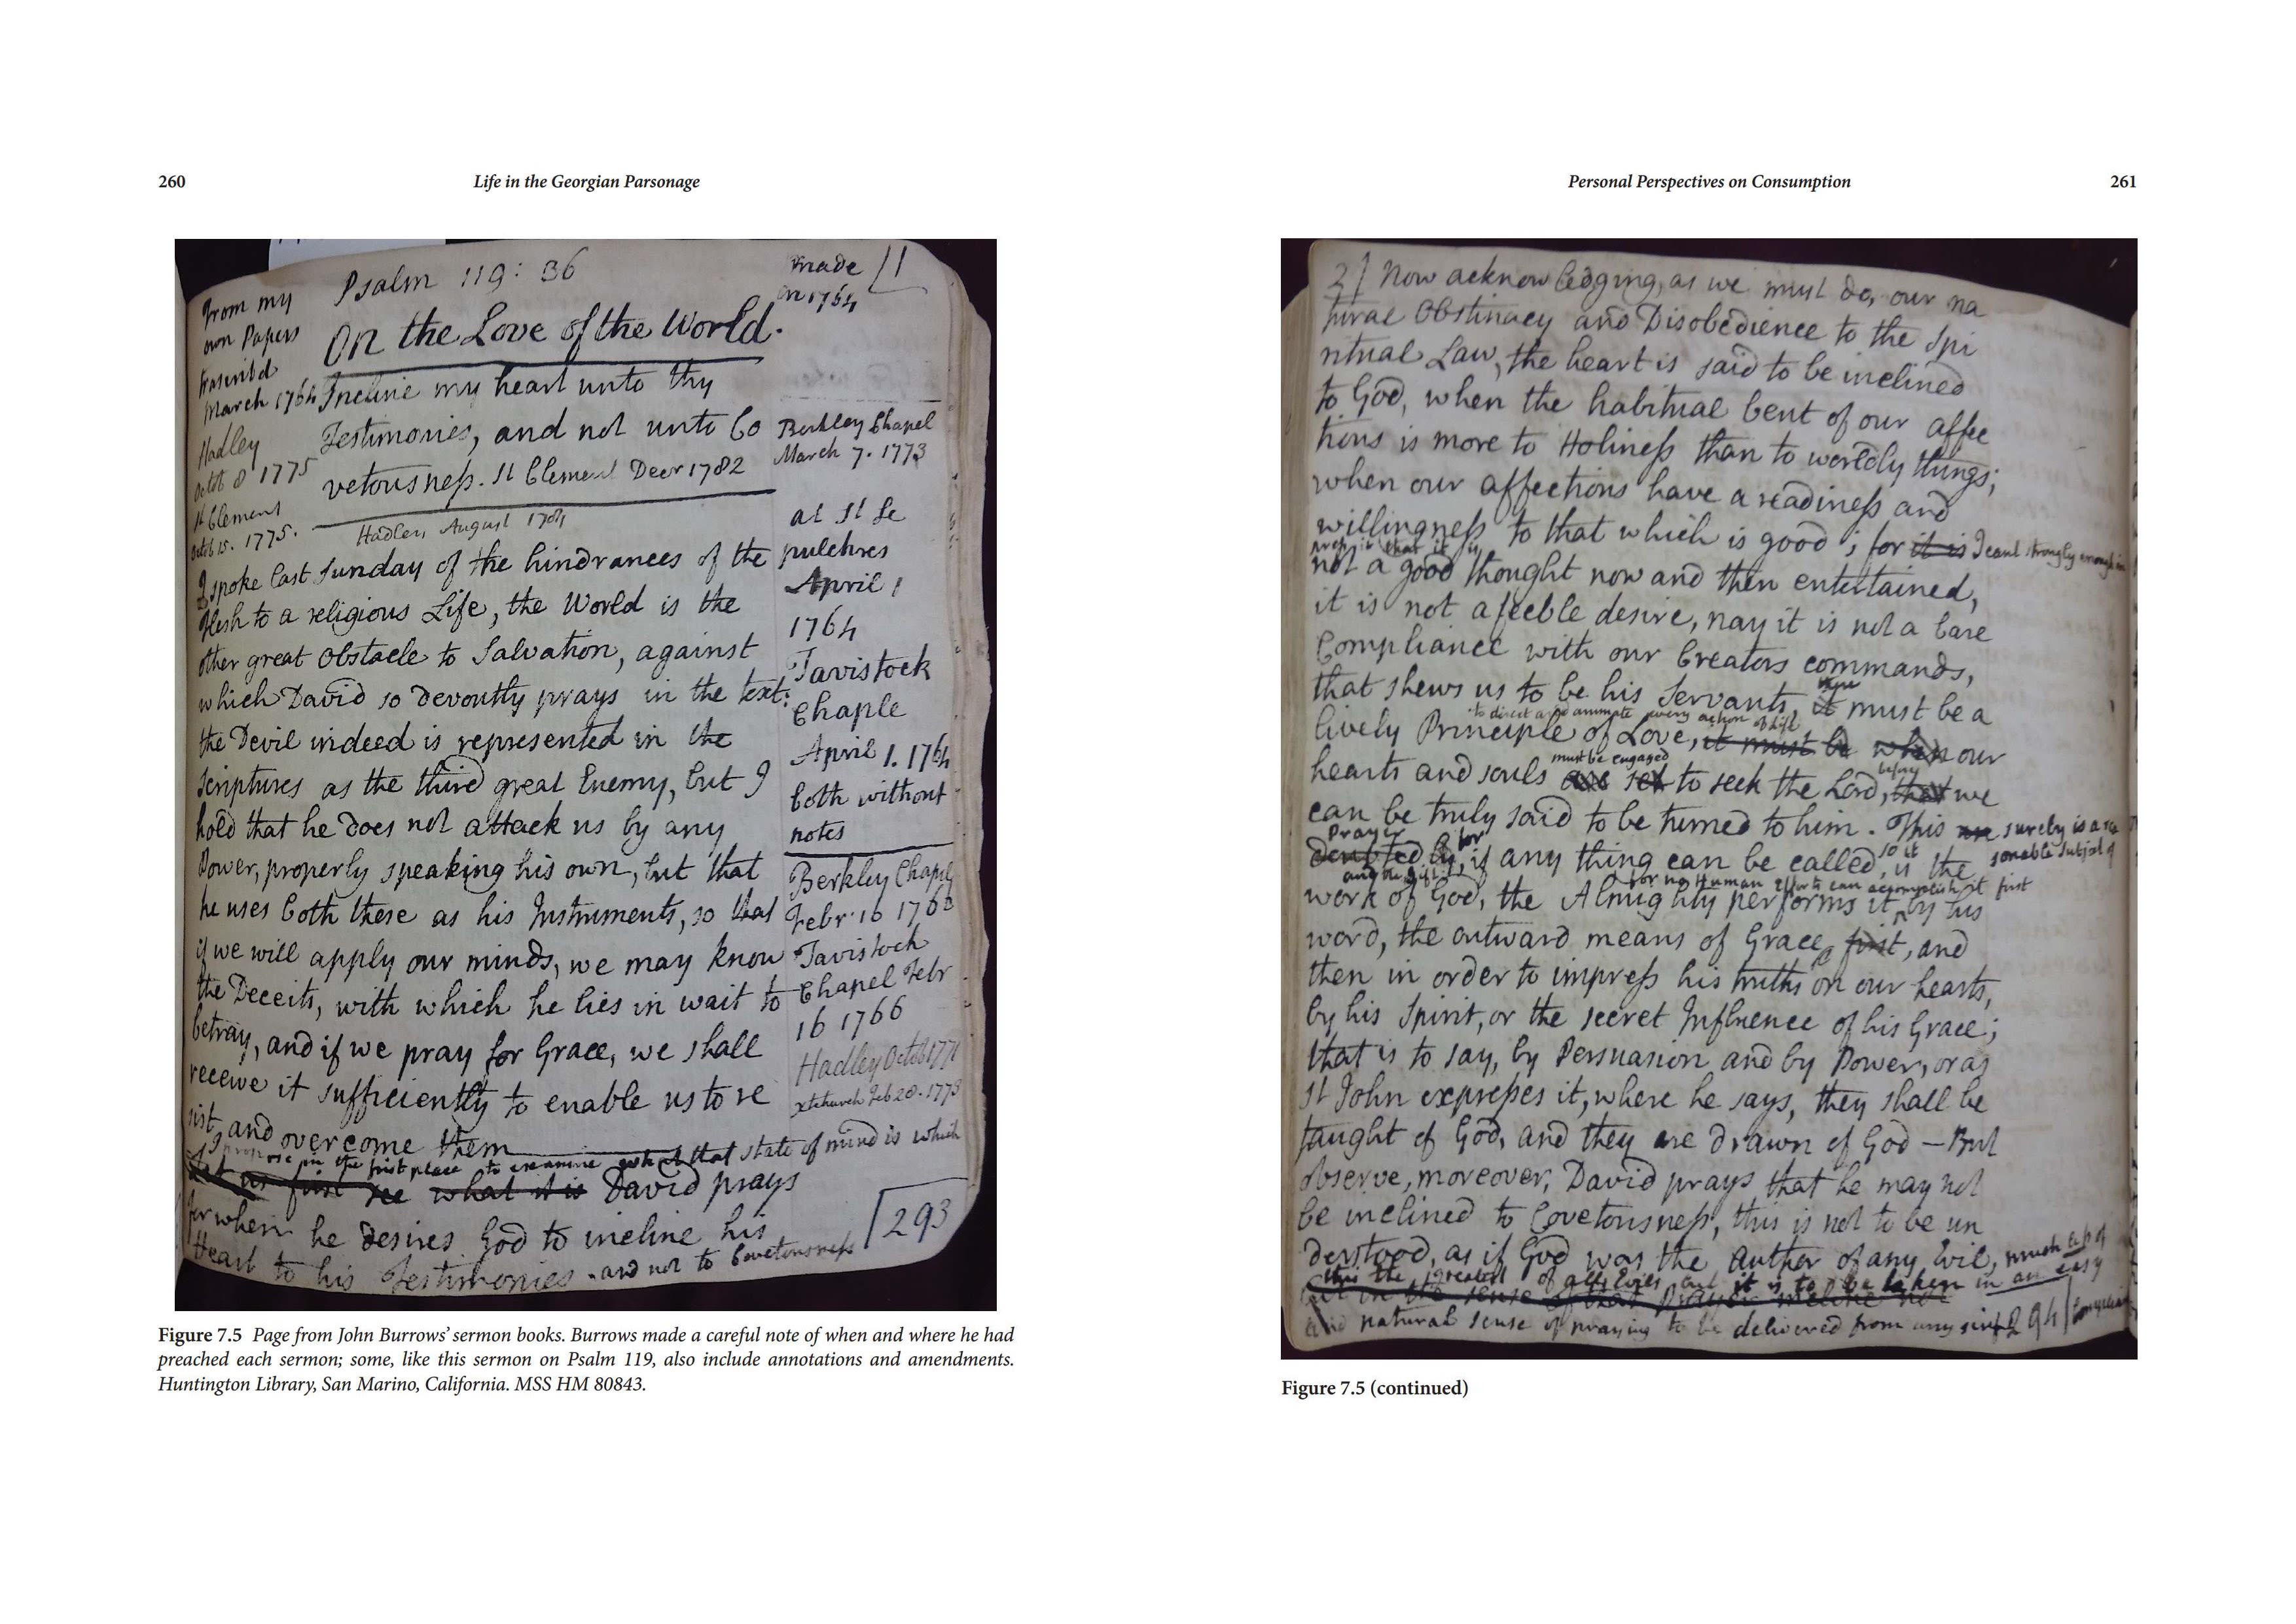 260
Life in the Georgian Parsonage
From my
own Papers
March 1764
Hadley
Octob 8 1775
St Clement
Octob 15. 1775.
Psalm 119: 36
On the Love of the World.
Incline my heart unto thy
Testimonies, and not unto Co
vetousness. St Clement Decr 1782
Hadley August 1784
I spoke last Sunday of the hindrances of the
flesh to a religious Life, the World is the
other great Obstacle to Salvation, against
which David so devoutly prays in the text:
the Devil indeed is represented in the
Scriptures as the third great Enemy, but I
hold that he does not attack us by any
Power, properly speaking his own, but that
he uses both these as his Instruments, so that
if we will apply our minds, we may know
the Deceits, with which he lies in wait to
betray, and if we pray for Grace, we shall
receive it sufficiently to enable us to re
sist and overcome them
I propose in the first place to examine what that state of mind is which
Let us first see what it is David prays
for when he desires God to incline his
Heart to his Testimonies and not to Covetousness
made
in 1764
1
Berkley Chapel
March 7. 1773
at St Se
pulchres
April 1
1764
Tavistock
Chaple
April 1. 1764
both without
notes
Berkley Chapel
Febr 16 1766
Tavistock
Chapel Febr
16 1766
Hadley Octob 1771
Feb 28. 1773
293
Figure 7.5 Page from John Burrows’ sermon books. Burrows made a careful note of when and where he had
preached each sermon; some, like this sermon on Psalm 119, also include annotations and amendments.
Huntington Library, San Marino, California. MSS HM 80843.
Personal Perspectives on Consumption
261
2/ Now acknowledging, as we must do, our na
tural Obstinacy and Disobedience to the Spi
ritual Law, the heart is said to be inclined
to God, when the habitual bent of our affec
tions is more to Holiness than to worldly things;
when our affections have a readiness and
willingness to that which is good; for it is I cant strongly enough
that it is
not a good thought now and then entertained,
it is not a feeble desire, nay it is not a bare
Compliance with our Creators commands,
that shews us to be his Servants, it must be a
to direct and animate every action of life
lively Principle of Love, it must be when our
must be engaged before
hearts and souls are set to seek the Lord, that we
can be truly said to be turned to him. This surely is a rea
Prayer for so it sonable subject of
if any thing can be called, is the
and the gift for no Human efforts can accomplish it first
work of God, the Almighty performs it by his
word, the outward means of Grace first, and
then in order to impress his truths on our hearts,
by his Spirit, or the secret Influence of his Grace;
that is to say, by Persuasion and by Power, or as
St John expresses it, where he says, they shall be
taught of God, and they are drawn of God — But
observe, moreover, David prays that he may not
be inclined to Covetousness, this is not to be un
derstood, as if God was the Author of any Evil, much less of
this the greatest of all Evils but it is to be taken in an easy
but in the sense of that Prayer incline not
and natural sense of praying to be delivered from any sin
294
Figure 7.5 (continued)